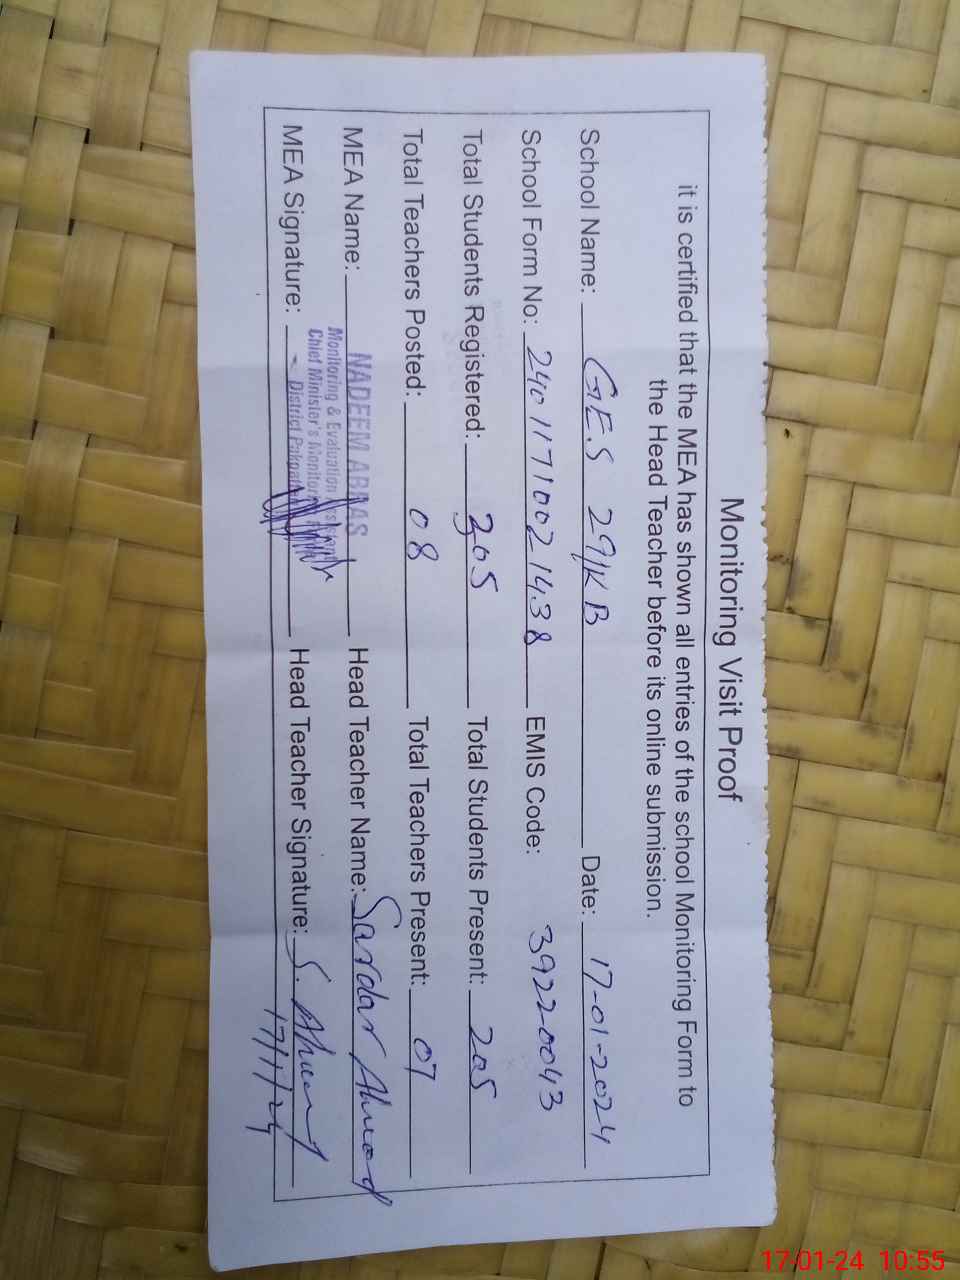 Monitoring Visit Proof
it is certified that the MEA has shown all entries of the school Monitoring Form to
the Head Teacher before its online submission.
School Name: GES 29/KB Date: 17-01-2024
School Form No: 24011710021438 EMIS Code: 39220043
Total Students Registered: 205 Total Students Present: 205
Total Teachers Posted: 08 Total Teachers Present: 07
MEA Name: NADEEM ABBAS Head Teacher Name: Sardar Ahmad
Monitoring & Evaluation
Chief Minister's Monitoring
District Pakpattan
MEA Signature: Head Teacher Signature: S. Ahmad
17/1/24
17-01-24 10:55